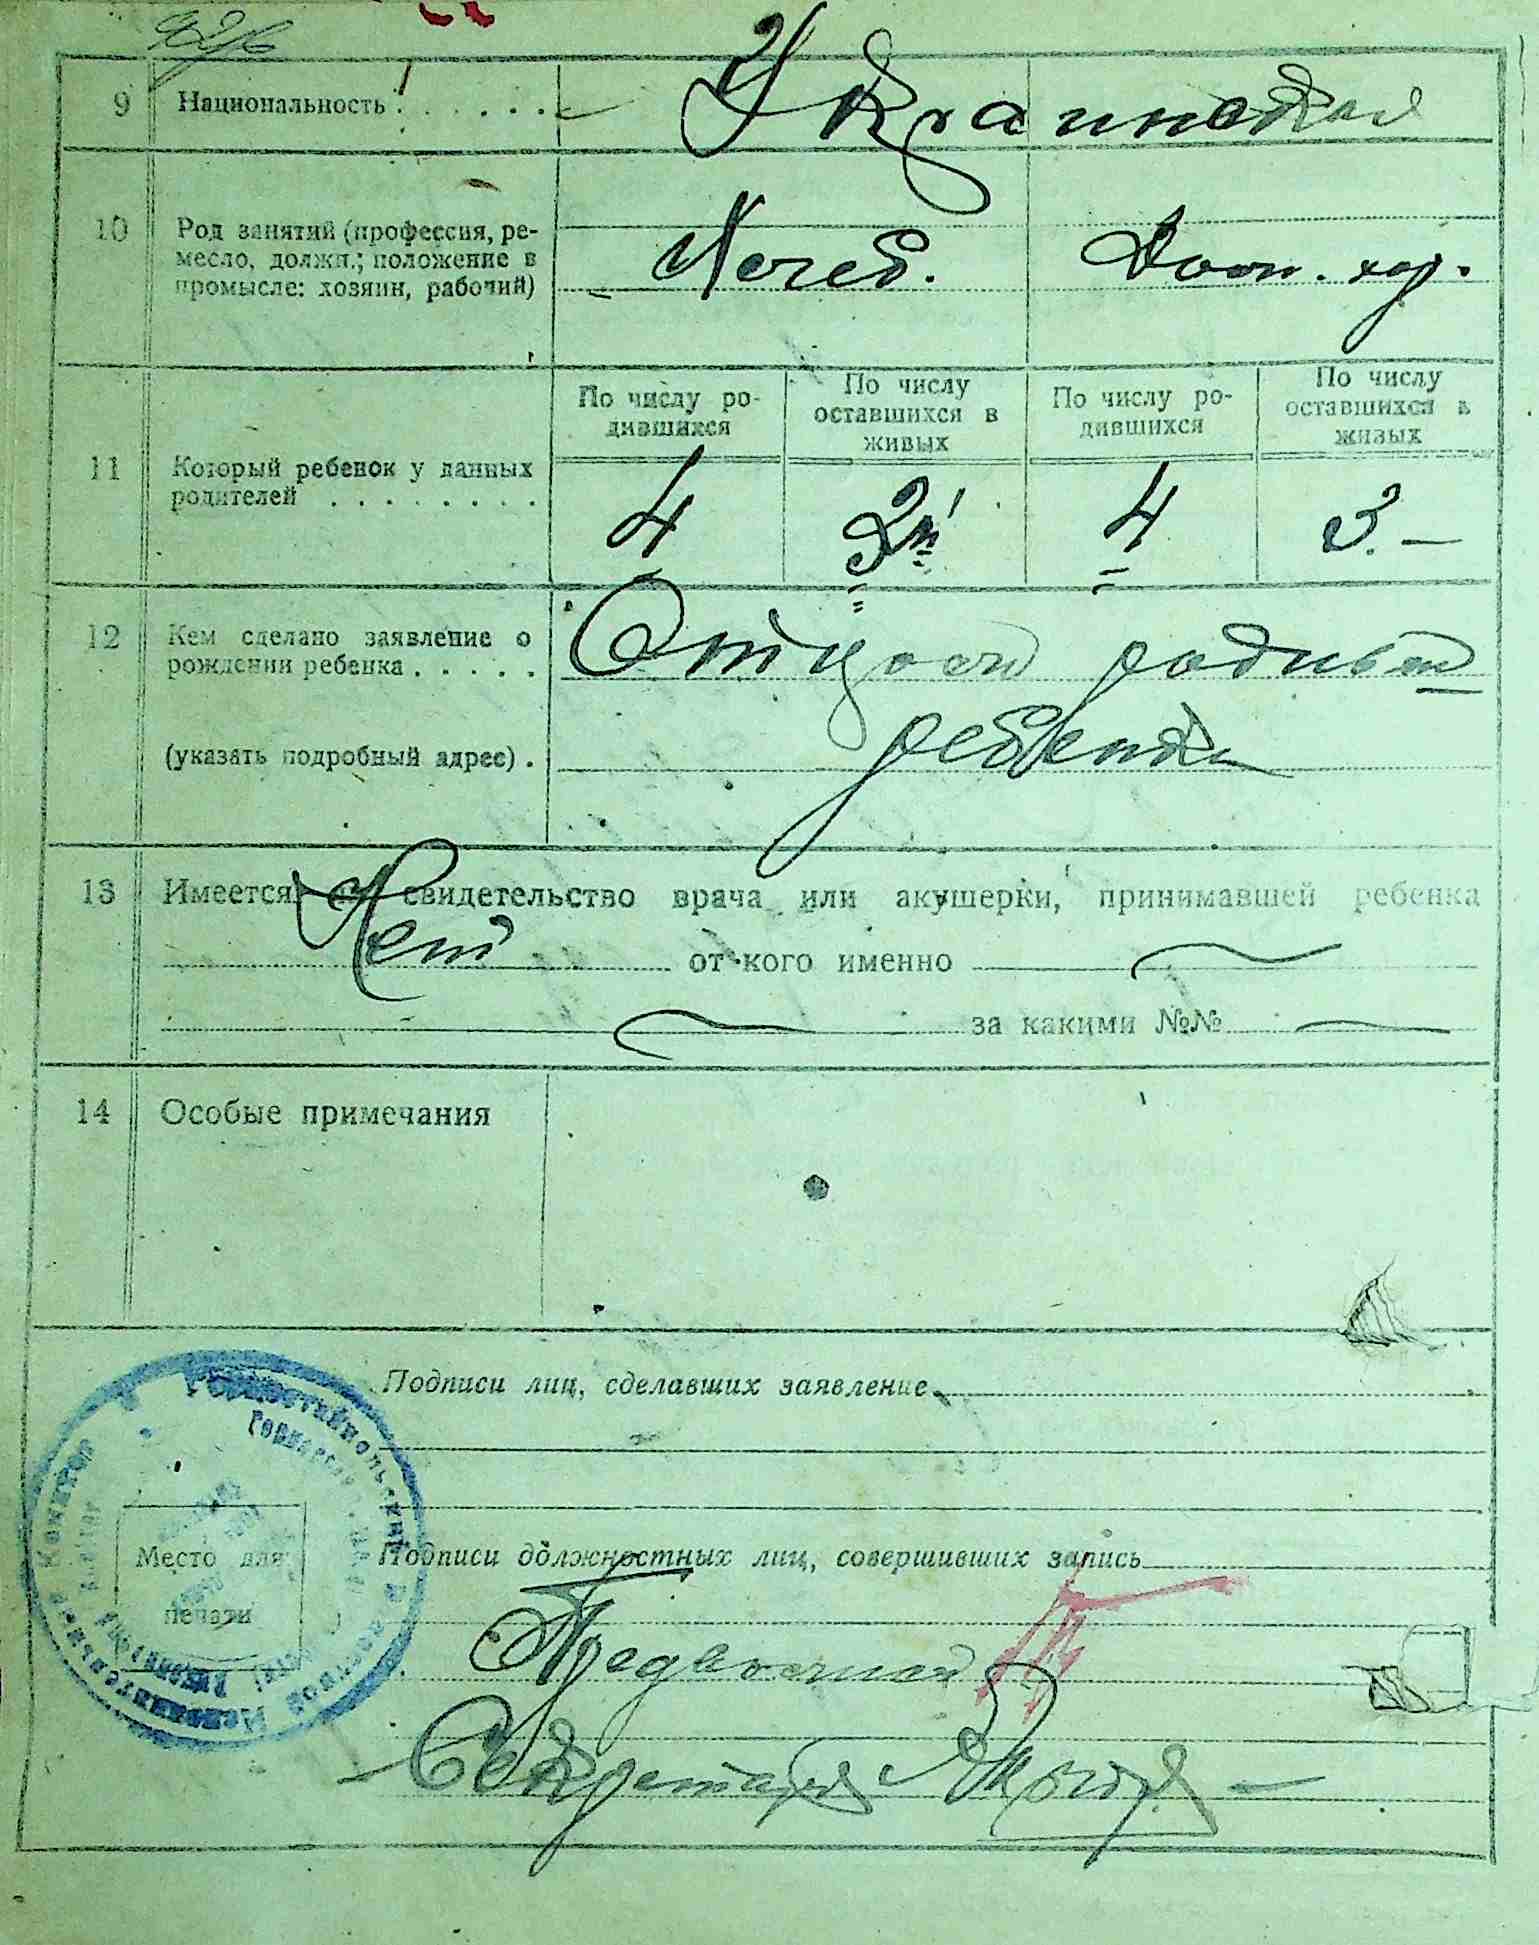 9 Национальность . . . . . . Украинская
10 Род занятий (профессия, ре-
месло, должн.; положение в
промысле: хозяин, рабочий)
Хлеб. Дом. хоз.
11 Который ребенок у данных
родителей . . . . . . . .
По числу ро-
дившихся
По числу
оставшихся в
живых
По числу ро-
дившихся
По числу
оставшихся в
живых
4 4 3.—
12 Кем сделано заявление о
рождении ребенка . . . . .
Отцом
ребенка
(указать подробный адрес) .
13 Имеется ли свидетельство врача или акушерки, принимавшей ребенка
Нет от кого именно
за какими №№
14 Особые примечания
Подписи лиц, сделавших заявление
Место для
печати
Подписи должностных лиц, совершивших запись
Секретарь